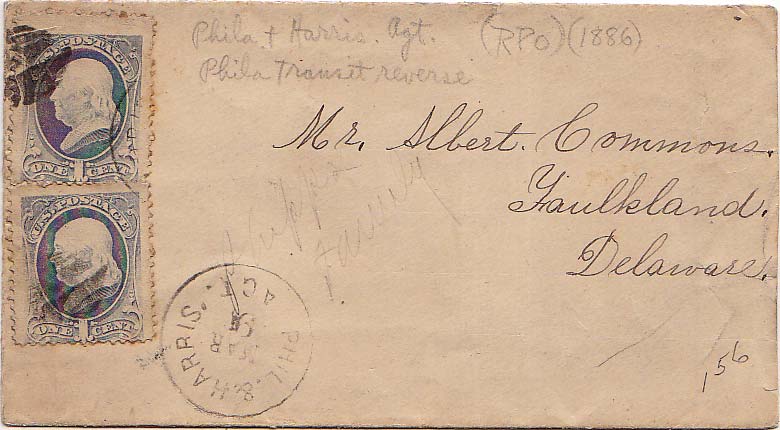 Phila & Harris. Agt. (RPO) (1886)
Phila Transit reverse
U.S. POSTAGE
ONE 1 CENT
U.S. POSTAGE
ONE 1 CENT
Mr. Albert. Commons.
Faulkland.
Delaware.
Family
PHIL. & HARRIS.
AGT.
MAR
156